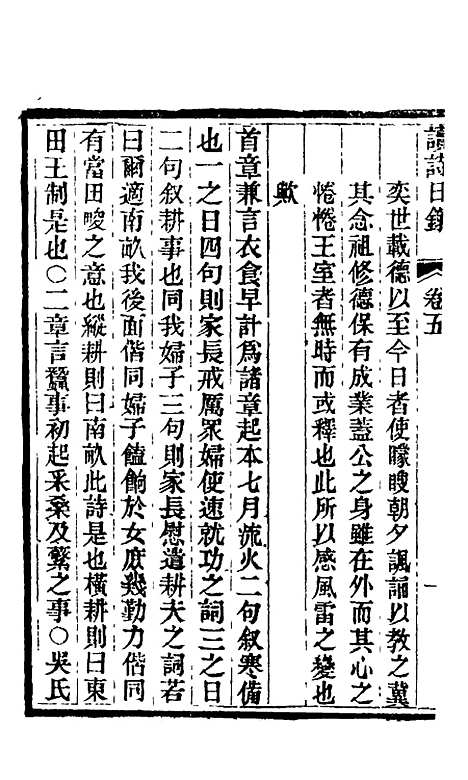 讀詩日錄 卷五 一
奕世載德以至今日者使矇瞍朝夕諷誦以教之冀
其念祖修德保有成業蓋公之身雖在外而其心之
惓惓王室者無時而或釋也此所以感風雷之變也
歟
首章兼言衣食早計爲諸章起本七月流火二句叙寒備
也一之日四句則家長戒厲眾婦使速就功之詞三之日
二句叙耕事也同我婦子三句則家長慰遣耕夫之詞若
曰爾適南畝我後面偕同婦子饁餉於女庶幾勤力偕同
有當田畯之意也縱耕則曰南畝此詩是也橫耕則曰東
田王制是也〇二章言蠶事初起釆桑及蘩之事〇吳氏